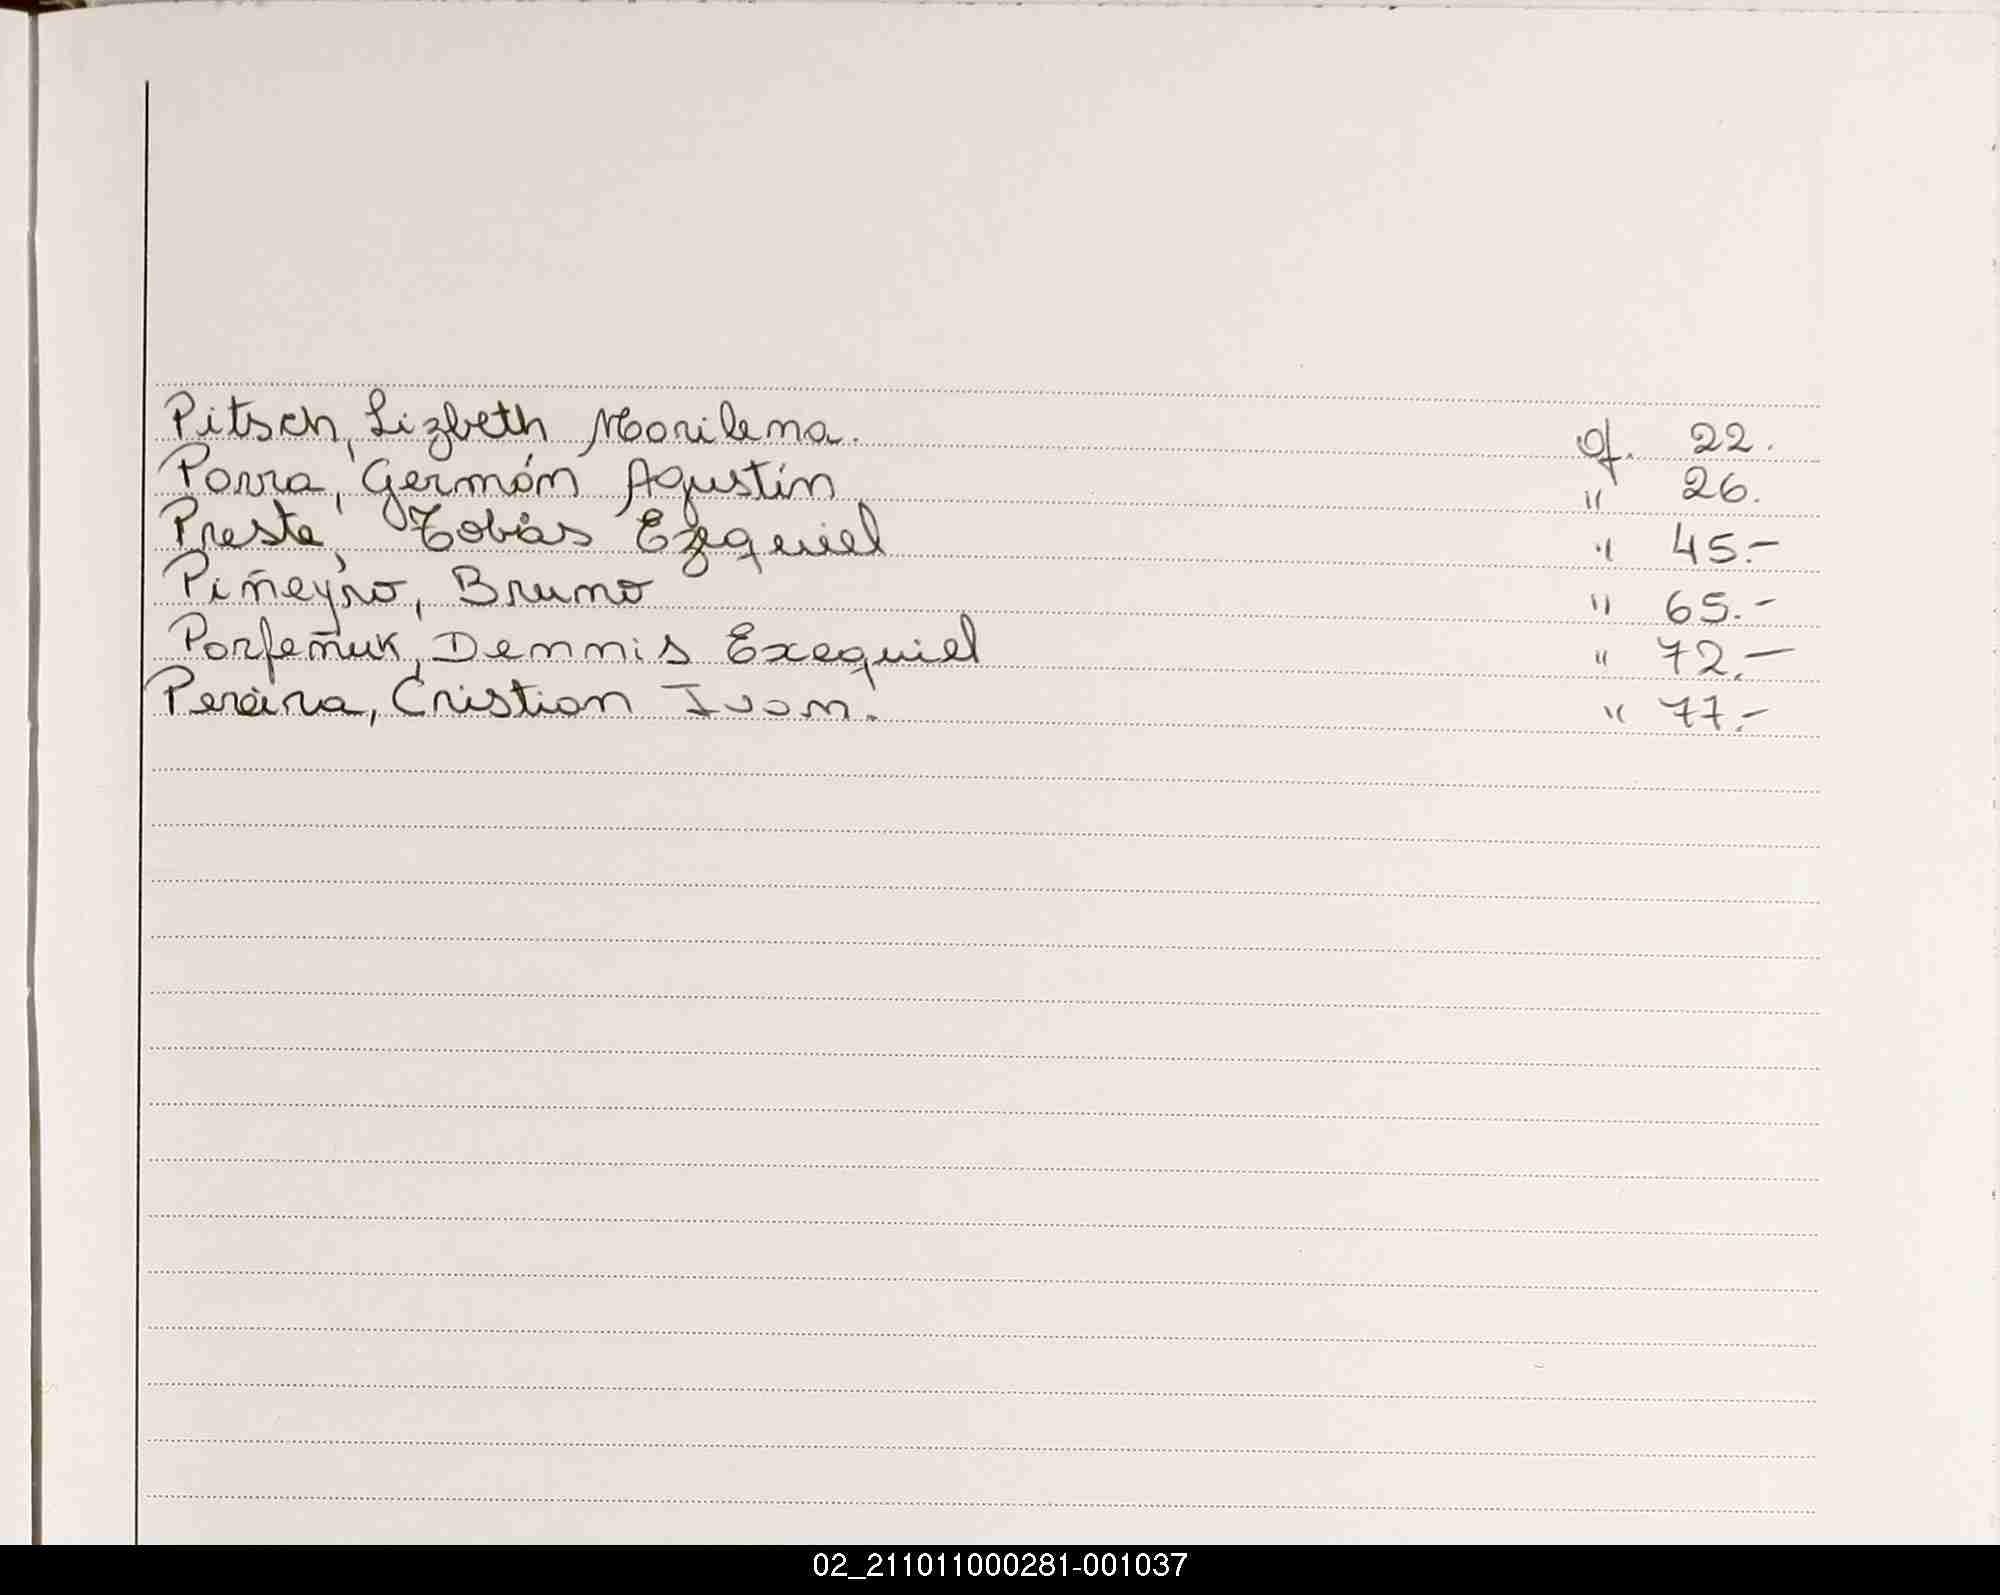 Pitsch, Lizbeth Marilena. of. 22.
Parra, Germán Agustín " 26.
Preste, Tobías Ezequiel " 45.-
Piñeyro, Bruno " 65.-
Porfeñuk, Dennis Exequiel " 72.-
Pereira, Cristian Ivan. " 77.-
02_211011000281-001037